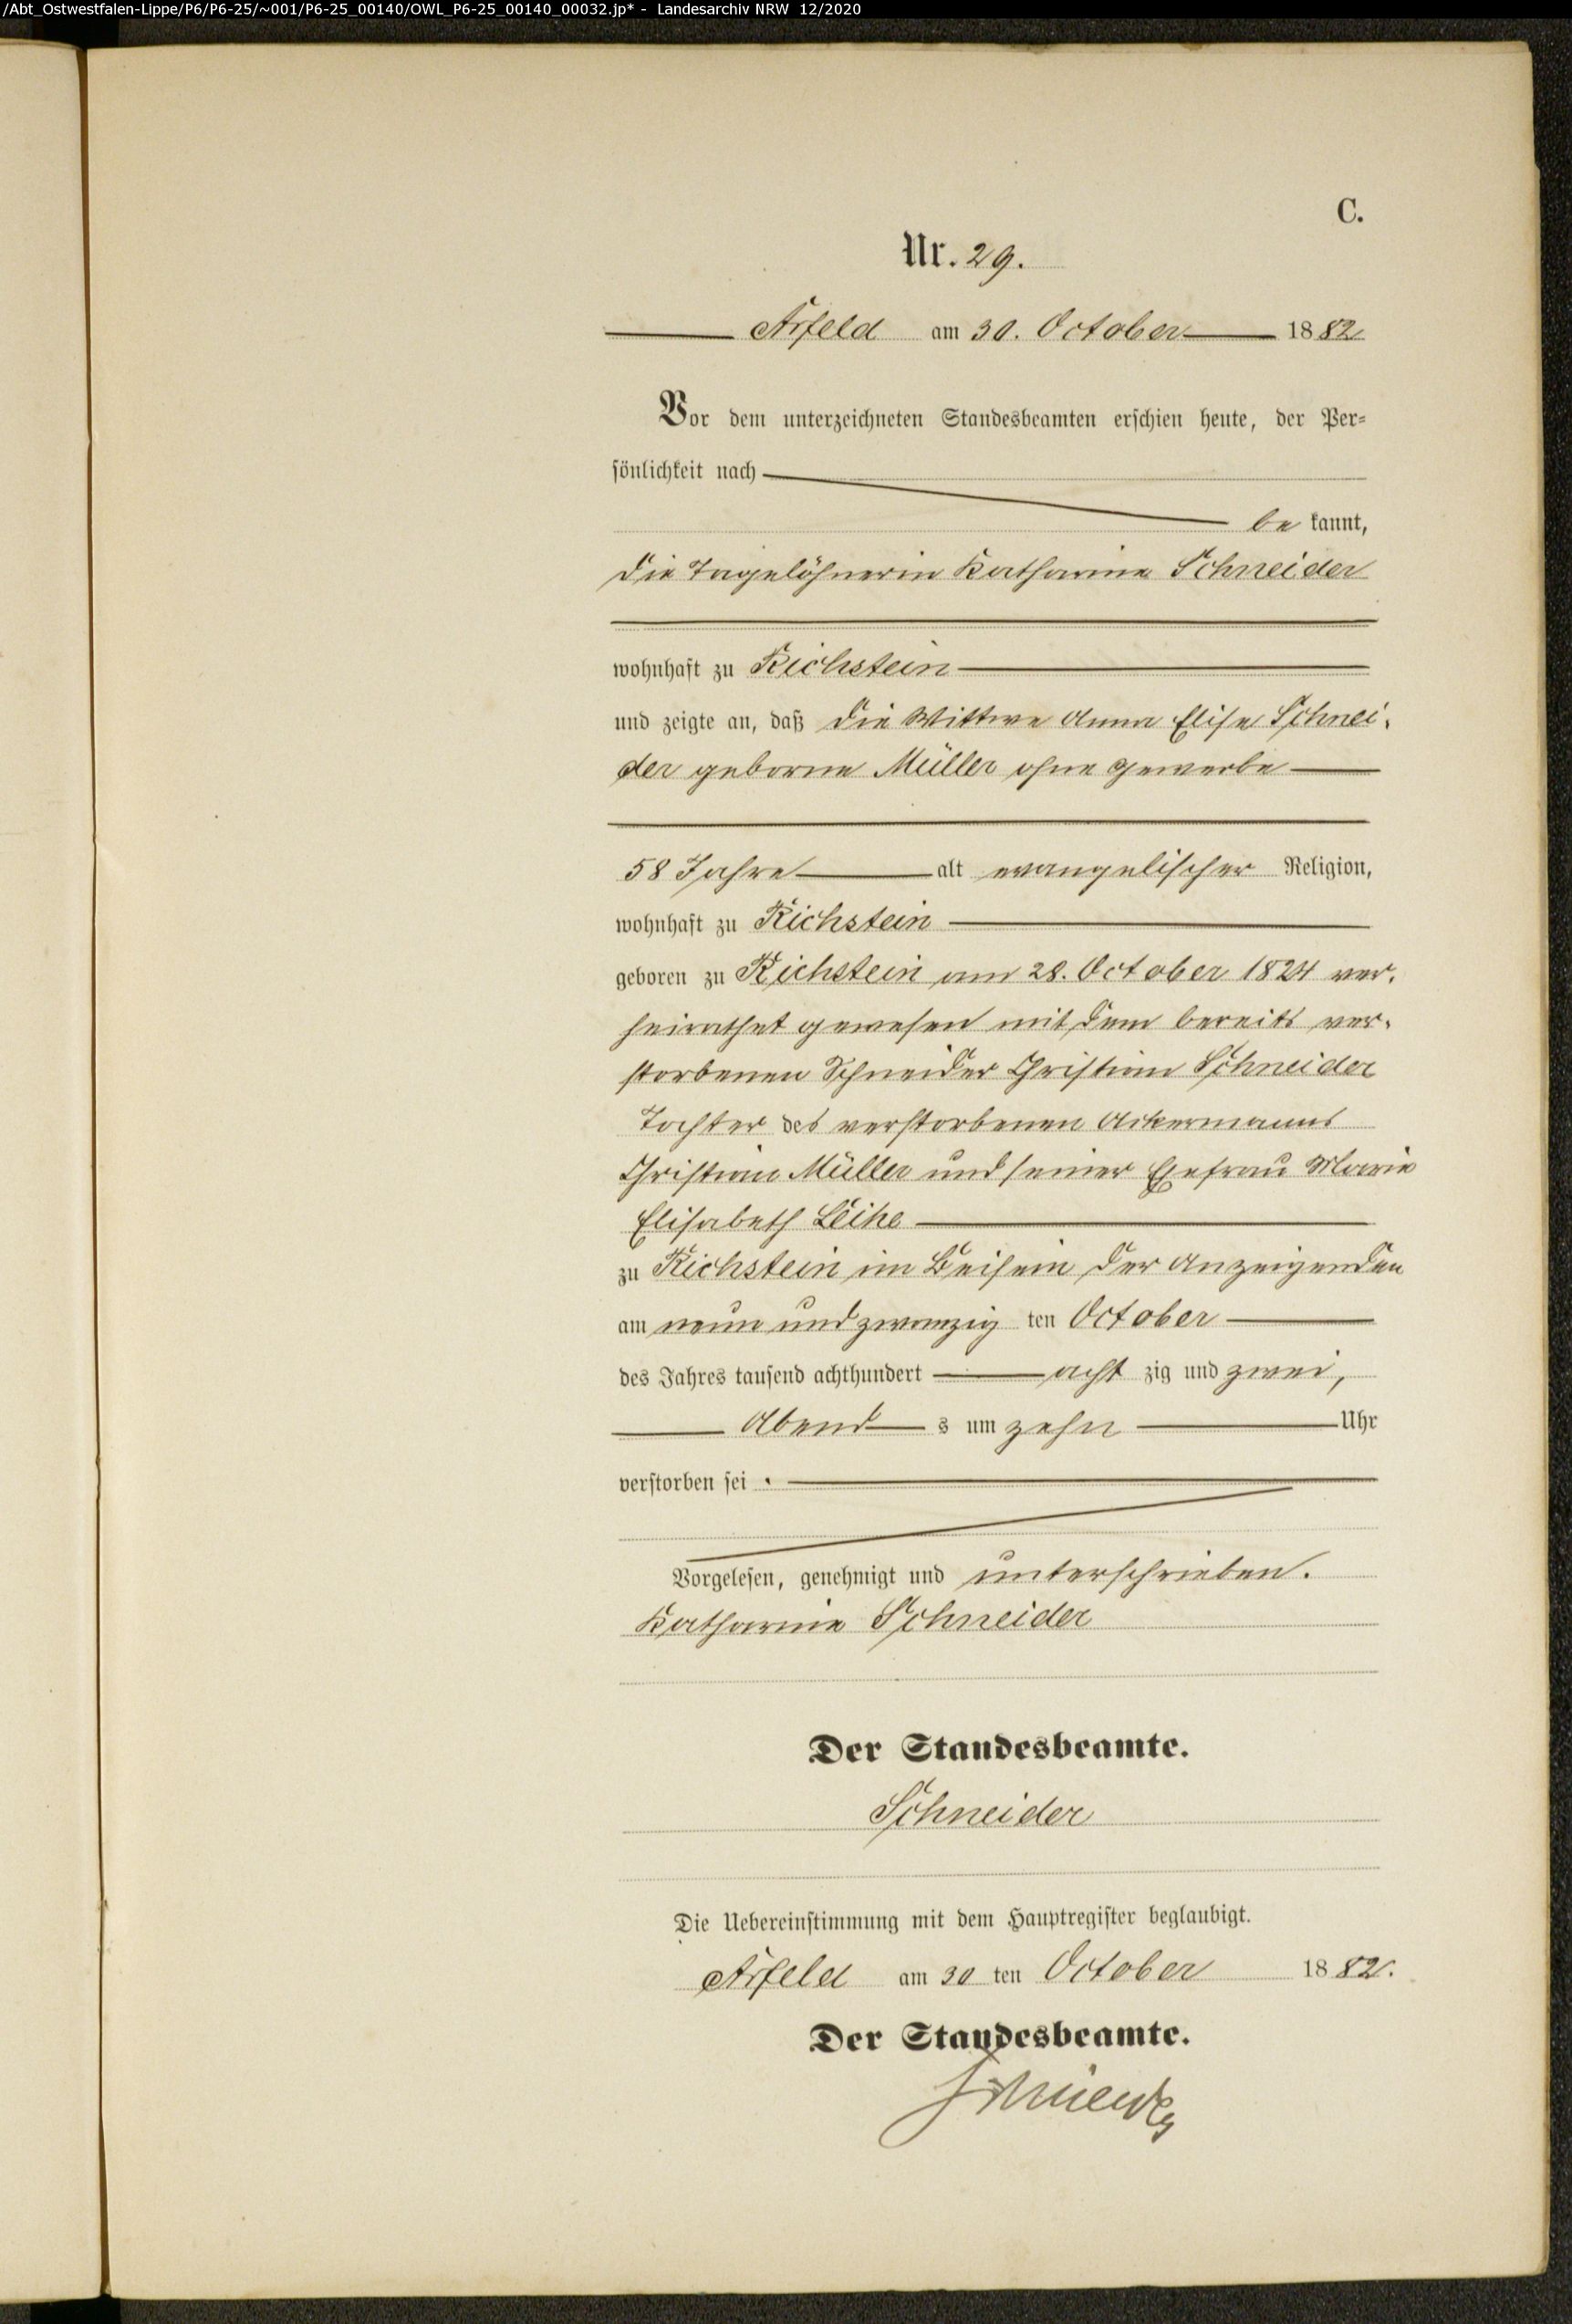 /Abt_Ostwestfalen-Lippe/P6/P6-25/~001/P6-25_00140/OWL_P6-25_00140_00032.jp* - Landesarchiv NRW 12/2020
C.
Nr. 29.
Arfeld am 30. October 1882
Vor dem unterzeichneten Standesbeamten erschien heute, der Per-
sönlichkeit nach
be kannt,
die Tagelöhnerin Katharine Schneider
wohnhaft zu Richstein
und zeigte an, daß die Wittwe Anna Elise Schnei-
der geborne Müller ohne Gewerbe
58 Jahre alt evangelischer Religion,
wohnhaft zu Richstein
geboren zu Richstein am 28. October 1824 ver-
heirathet gewesen mit dem bereits ver-
storbenen Schneider Christian Schneider
Tochter des verstorbenen Ackermanns
Christian Müller und seiner Ehefrau Marie
Elisabeth Leihe
zu Richstein im Beisein der Anzeigenden
am neun und zwanzig ten October
des Jahres tausend achthundert acht zig und zwei,
Abend s um zehn Uhr
verstorben sei .
Vorgelesen, genehmigt und unterschrieben.
Katharine Schneider
Der Standesbeamte.
Schneider
Die Uebereinstimmung mit dem Hauptregister beglaubigt.
Arfeld am 30 ten October 1882.
Der Standesbeamte.
Schneider